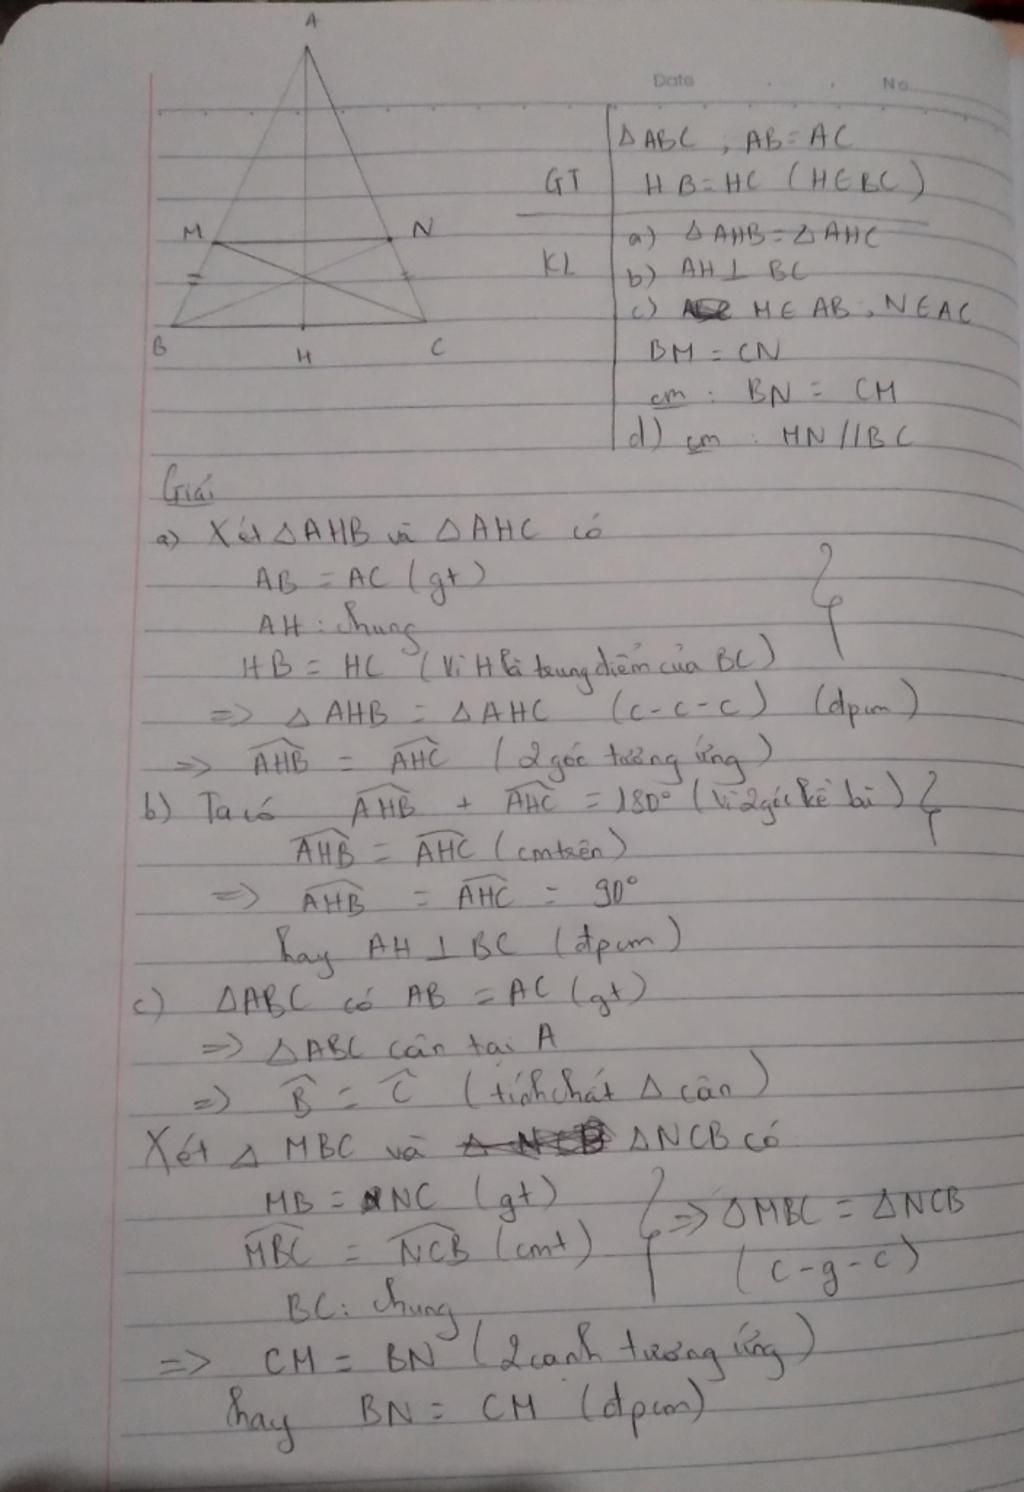 A
Date No.
ΔABC , AB = AC
GT HB = HC (H∈BC)
M N
a) ΔAHB = ΔAHC
KL
b) AH ⊥ BC
c) M ∈ AB, N ∈ AC
B H C
BM = CN
cm : BN = CM
d) cm : MN // BC
Giải
a) Xét ΔAHB và ΔAHC có
AB = AC (gt)
AH : chung
HB = HC (Vì H là trung điểm của BC)
=> ΔAHB = ΔAHC (c-c-c) (đpcm)
=> AHB = AHC (2 góc tương ứng)
b) Ta có AHB + AHC = 180° (Vì 2 góc kề bù)
AHB = AHC (cm trên)
=> AHB = AHC = 90°
hay AH ⊥ BC (đpcm)
c) ΔABC có AB = AC (gt)
=> ΔABC cân tại A
=> B = C (tính chất Δ cân)
Xét Δ MBC và ΔNCB có
MB = NC (gt)
=> ΔMBC = ΔNCB
MBC = NCB (cmt)
(c-g-c)
BC : chung
=> CM = BN (2 cạnh tương ứng)
hay BN = CM (đpcm)